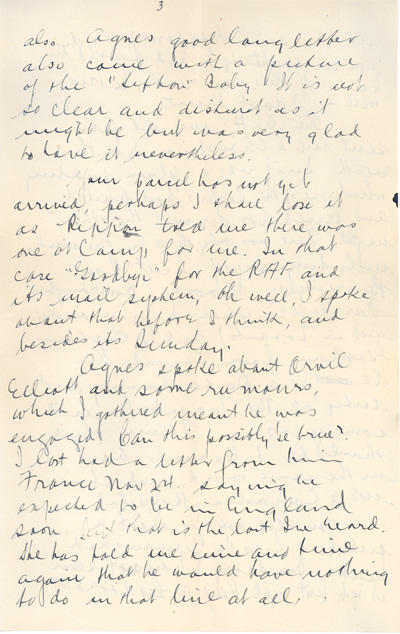 3
also. Agnes good long letter
also came with a picture
of the "Lefthow" Baby. It is not
so clear and distinct as it
might be but was very glad
to have it nevertheless.
Your parcel has not yet
arrived, perhaps I shall lose it
as Rippon told me there was
one at Camp for me. In that
case "Goodbye" for the RAF and
its mail system, Oh well, I spoke
about that before I think, and
besides its Sunday.
Agnes spoke about Orvil
Elliott and some rumours,
which I gathered meant he was
engaged! Can this possibly be true?
I last had a letter from him
France Nov 2nd. saying he
expected to be in England
soon. that is the last I've heard.
He has told me time and time
again that he would have nothing
to do in that line at all.